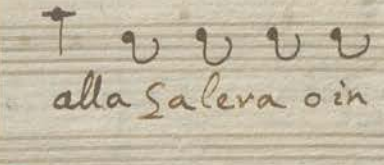 alla Galera o in